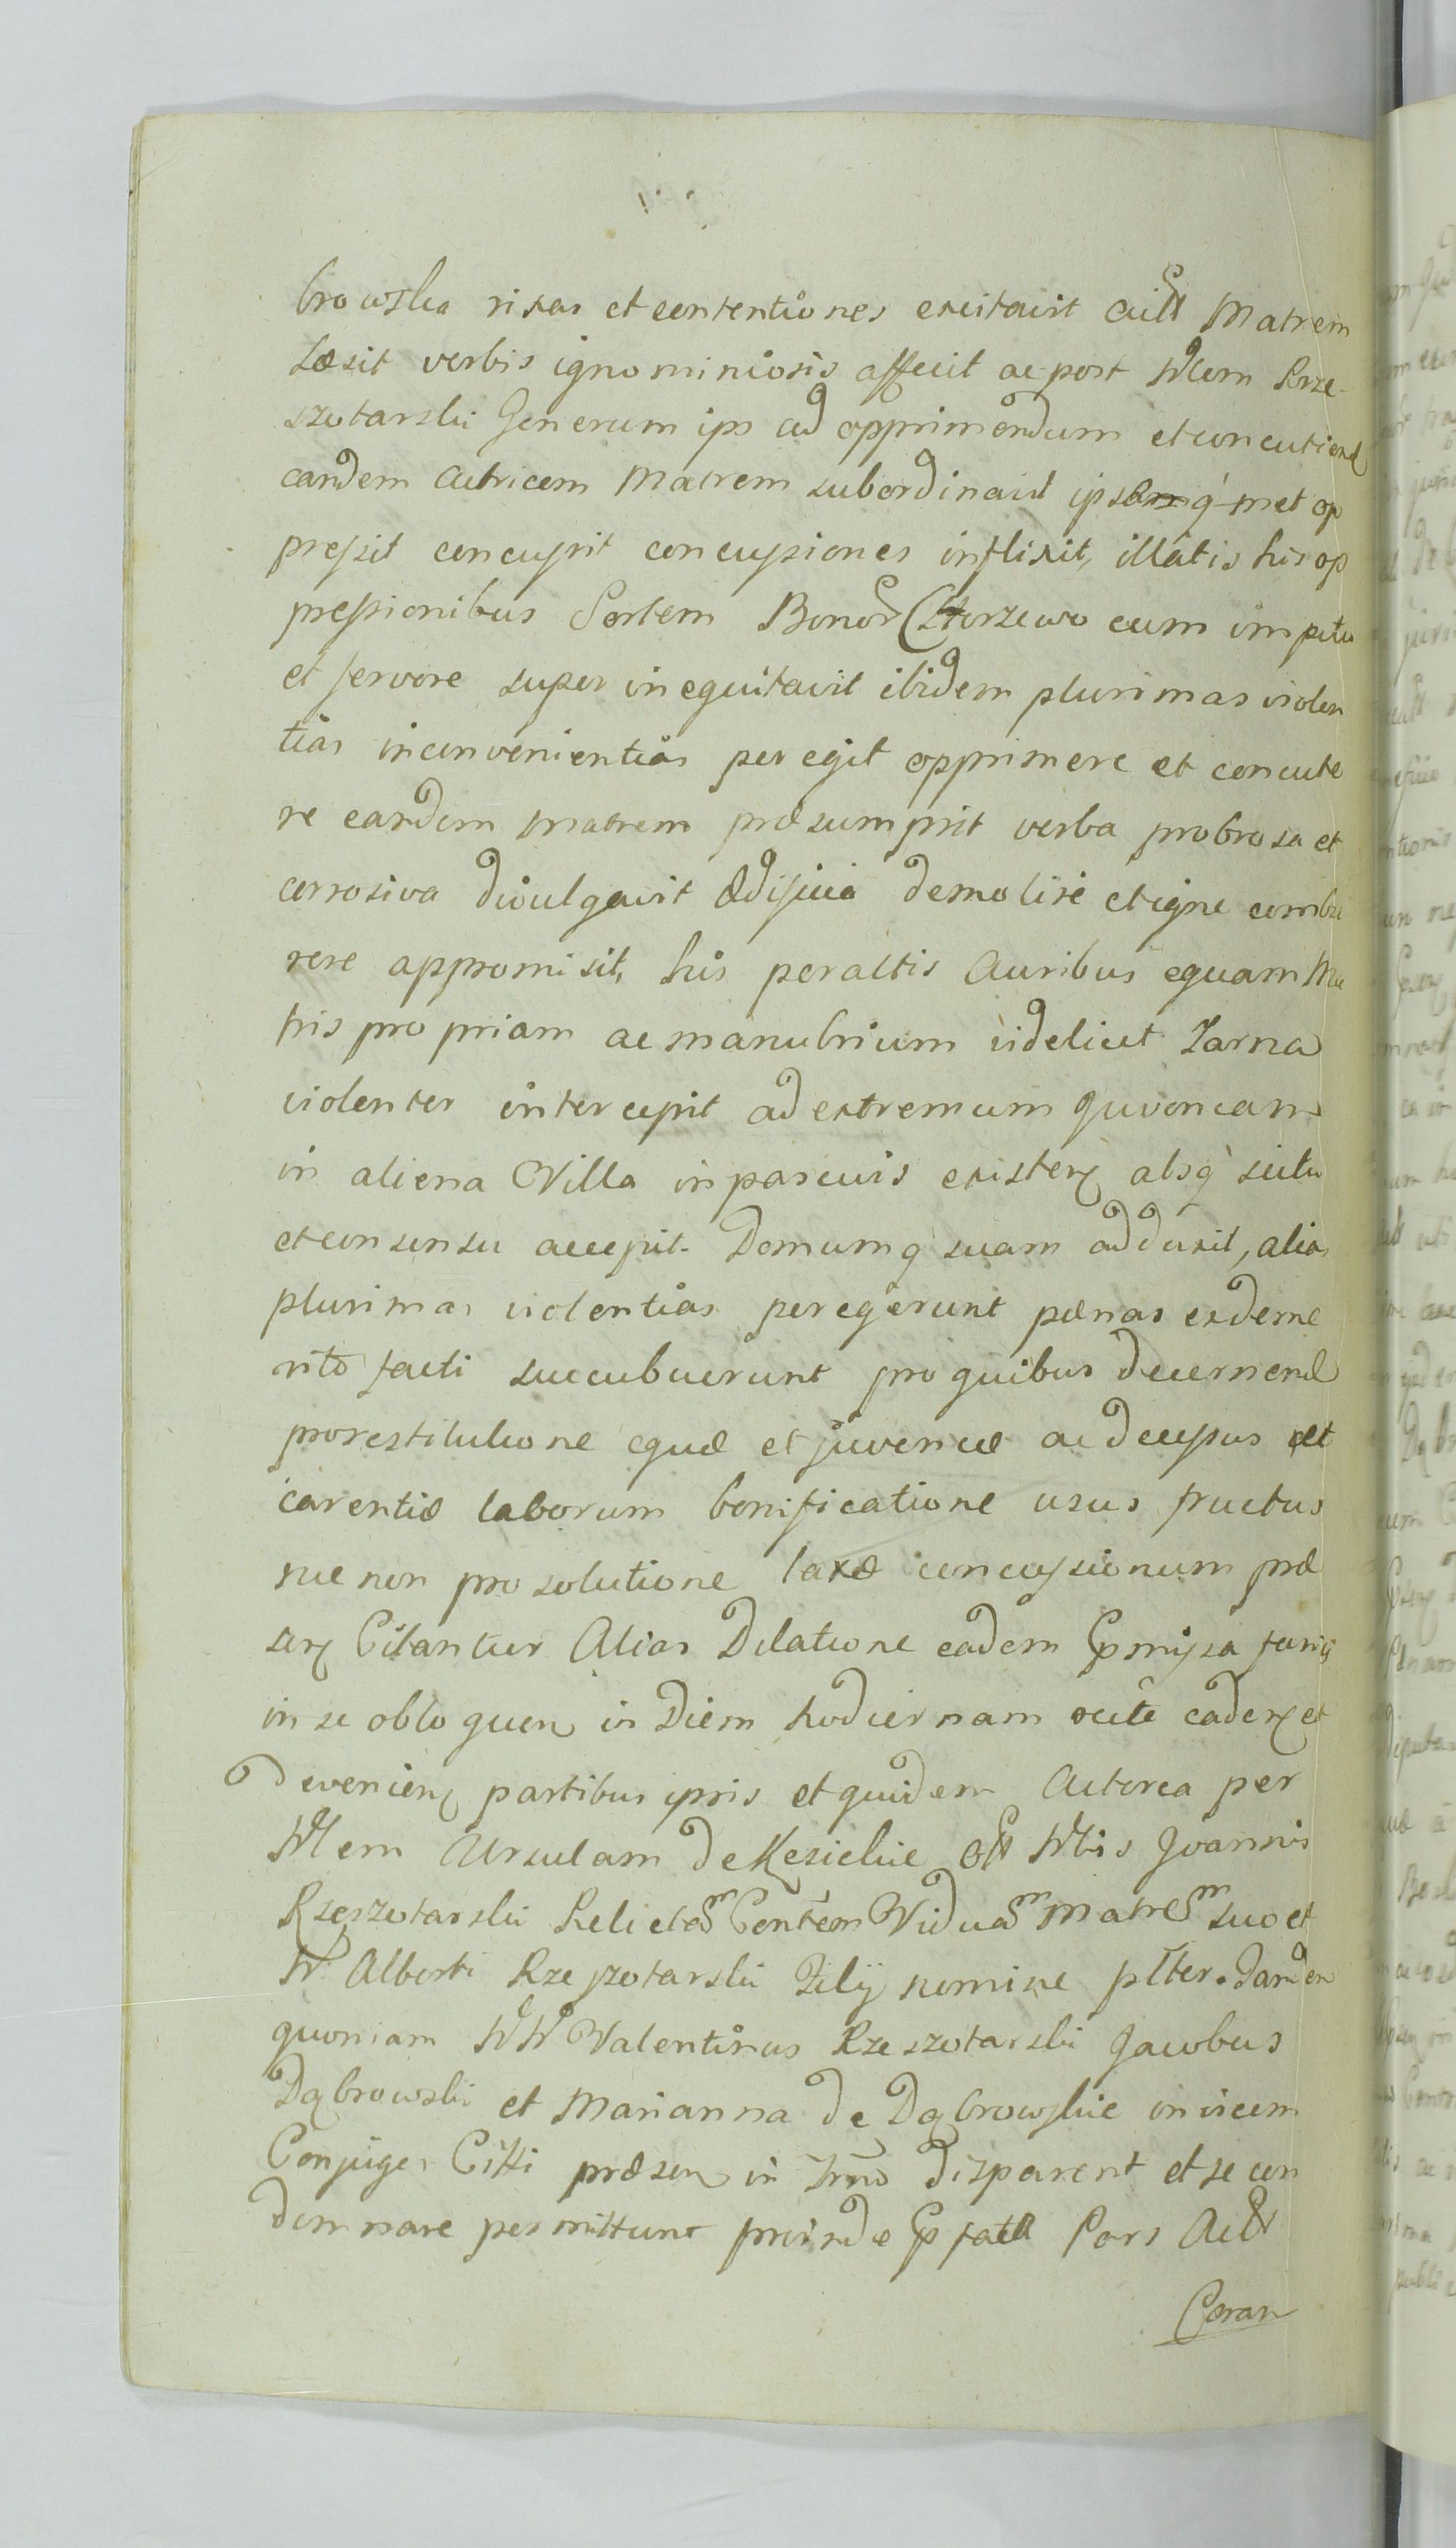 browska rixas et contentiones excitavit Matrem
Læsit verbis ignominiosis affecit ac post Rze-
szotarski Generum ips ad opprimendum et concutiend
eandem Actricem Matrem subordinavit met op
pressit concussit concussiones inflixit, illatis his op
pressionibus Sortem Bonor cum impetu
et fervore super inequitavit ibidem plurimas violen
tias inconvenientias peregit opprimere et concute
re eandem Matrem præsumpsit verba probrosa et
corrosiva divulgavit Ædificia demolire et igne combu
rere appromisit, his peractis Auribus equam Ma
tris propriam ac manubrium videlicet Żarna
violenter intercepit ad extremum juvencam
in aliena Villa in pascuis existen absq scitu
et consensu accepit. Domumq suam adduxit, alias
plurimas violentias peregerunt pænas ex deme
rito facti succubuerunt pro quibus decernend
pro restitutione equæ et juvencæ ac decessus et
carentiæ laborum bonificatione usus fructus
nec non pro solutione taxæ concussionum præ
sen Citantur Alias Dilatione eadem juris
in se obloquen in Diem hodiernam rite caden et
devenien partibus ipsis et quidem Actorea per
Ursulam de Joannis
Rzeszotarski Relictam Viduam Matrem suo et
W. Alberti Rzeszotarski Filij nomine
quoniam WW Valentinus Rzeszotarski Jacobus
Dąbrowski et Marianna de Dąbrowskie invicem
Conjuges Citti præsen in Trno disparent et se con
demnare permittunt proinde Pars
Coram